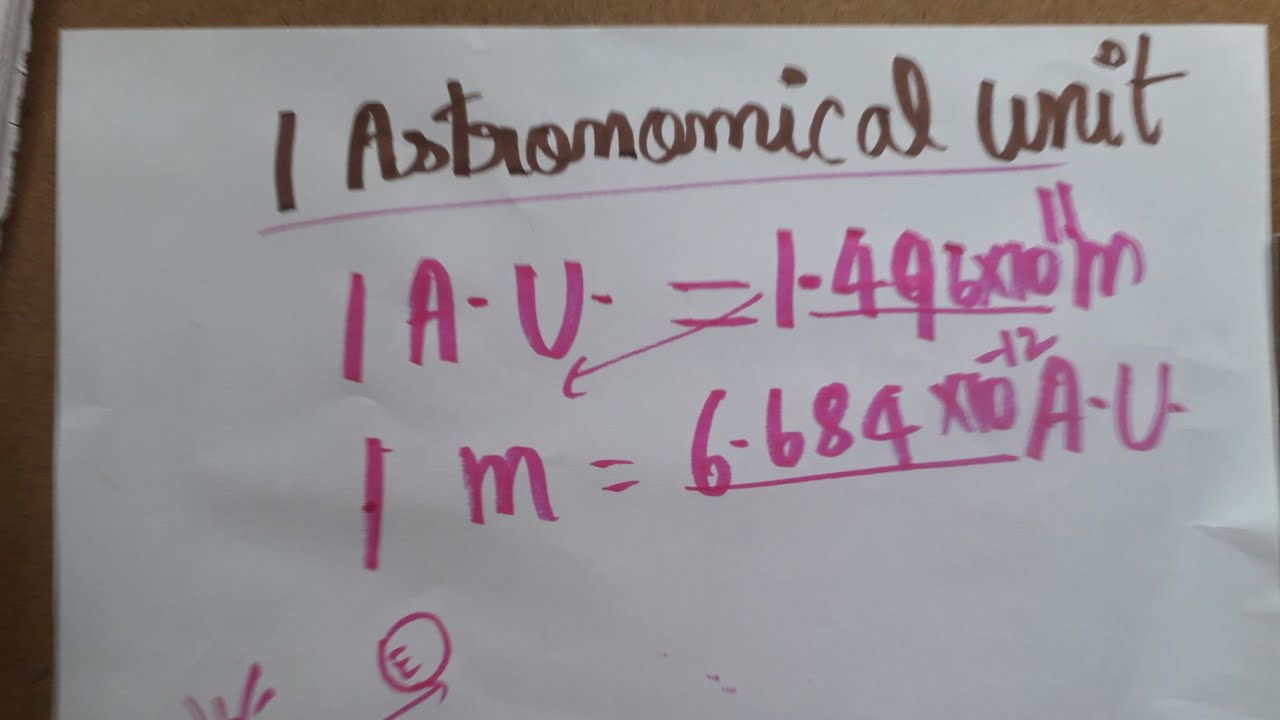 1 Astronomical unit
1 A.U. = 1.496x10¹¹m
1 m = 6.684x10⁻¹² A.U.
E